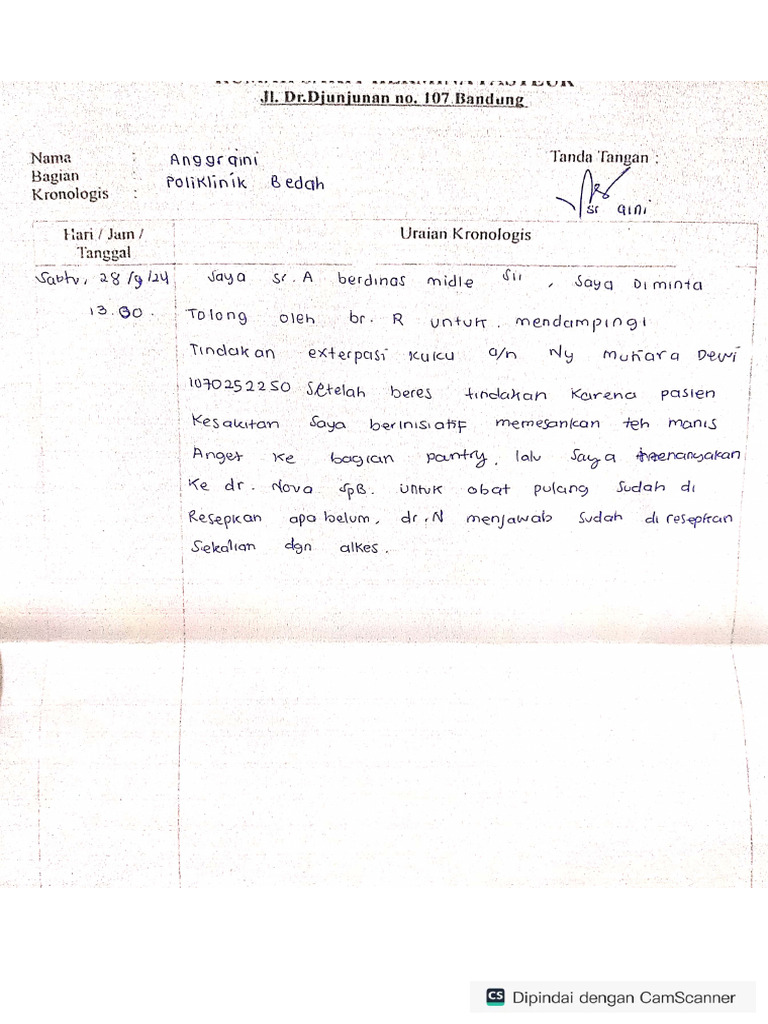 RUMAH SAKIT HERMINA PASTEUR
Jl. Dr.Djunjunan no. 107 Bandung
Nama : Anggraini
Tanda Tangan :
Bagian : Poliklinik Bedah
Kronologis :
sr aini
Hari / Jam / Tanggal
Uraian Kronologis
Sabtu, 28/9/24
13.00.
Saya sr. A berdinas midle, Saya Diminta
Tolong oleh br. R untuk. mendampingi
Tindakan exterpasi kuku a/n Ny Mutiara Dewi
1070252250 Setelah beres tindakan karena pasien
Kesakitan Saya berinisiatif memesankan teh manis
Anget ke bagian pantry, lalu Saya menanyakan
Ke dr. Nova SpB. untuk obat pulang sudah di
Resepkan apa belum, dr.N menjawab sudah di resepkan
Sekalian dgn alkes.
CS Dipindai dengan CamScanner